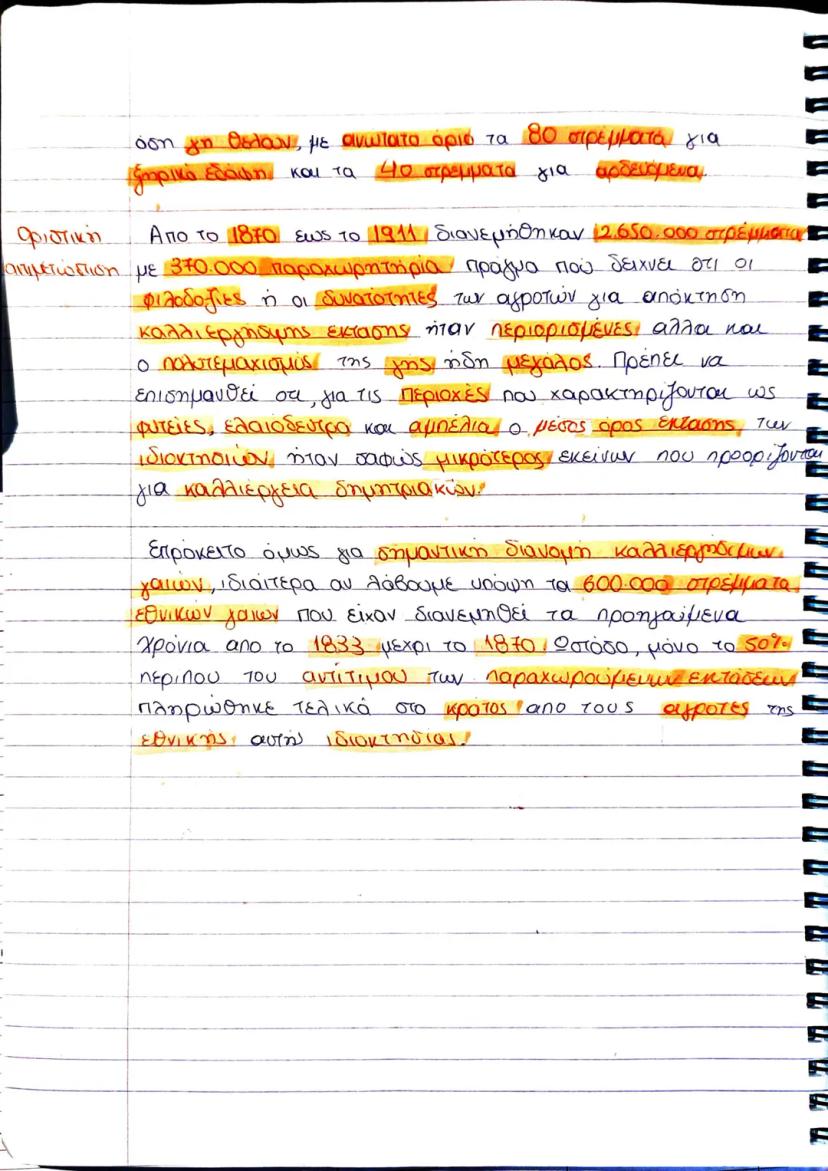 όση γη θέλαν, με ανώτατο όριο τα 80 στρέμματα για
ξηρικά εδάφη και τα 40 στρέμματα για αρδευόμενα.
Οριστική
αντιμετώπιση
Απο το 1870 εως το 1911 διανεμήθηκαν 2.650.000 στρέμματα
με 370.000 παραχωρητήρια πράγμα που δείχνει οτι οι
φιλοδοξίες ή οι δυνατότητες των αγροτών για απόκτηση
καλλιεργήσιμης έκτασης ήταν περιορισμένες αλλα και
ο πολυτεμαχισμός της γης ήδη μεγάλος. Πρέπει να
επισημανθεί οτι, για τις περιοχές που χαρακτηρίζονται ως
φυτείες, ελαιόδεντρα και αμπέλια ο μέσος όρος έκτασης των
ιδιοκτησιών ήταν σαφώς μικρότερος εκείνων που προορίζονται
για καλλιέργεια δημητριακών.
Επρόκειτο όμως για σημαντική διανομή καλλιεργήσιμων
γαιών, ιδιαίτερα αν λάβουμε υπόψη τα 600.000 στρέμματα
εθνικών γαιών που είχαν διανεμηθεί τα προηγούμενα
χρόνια απο το 1833 μεχρι το 1870. Ωστόσο, μόνο το 50%
περίπου του αντίτιμου των παραχωρούμενων εκτάσεων
πληρώθηκε τελικά στο κράτος απο τους αγρότες της
εθνικής αυτής ιδιοκτησίας.